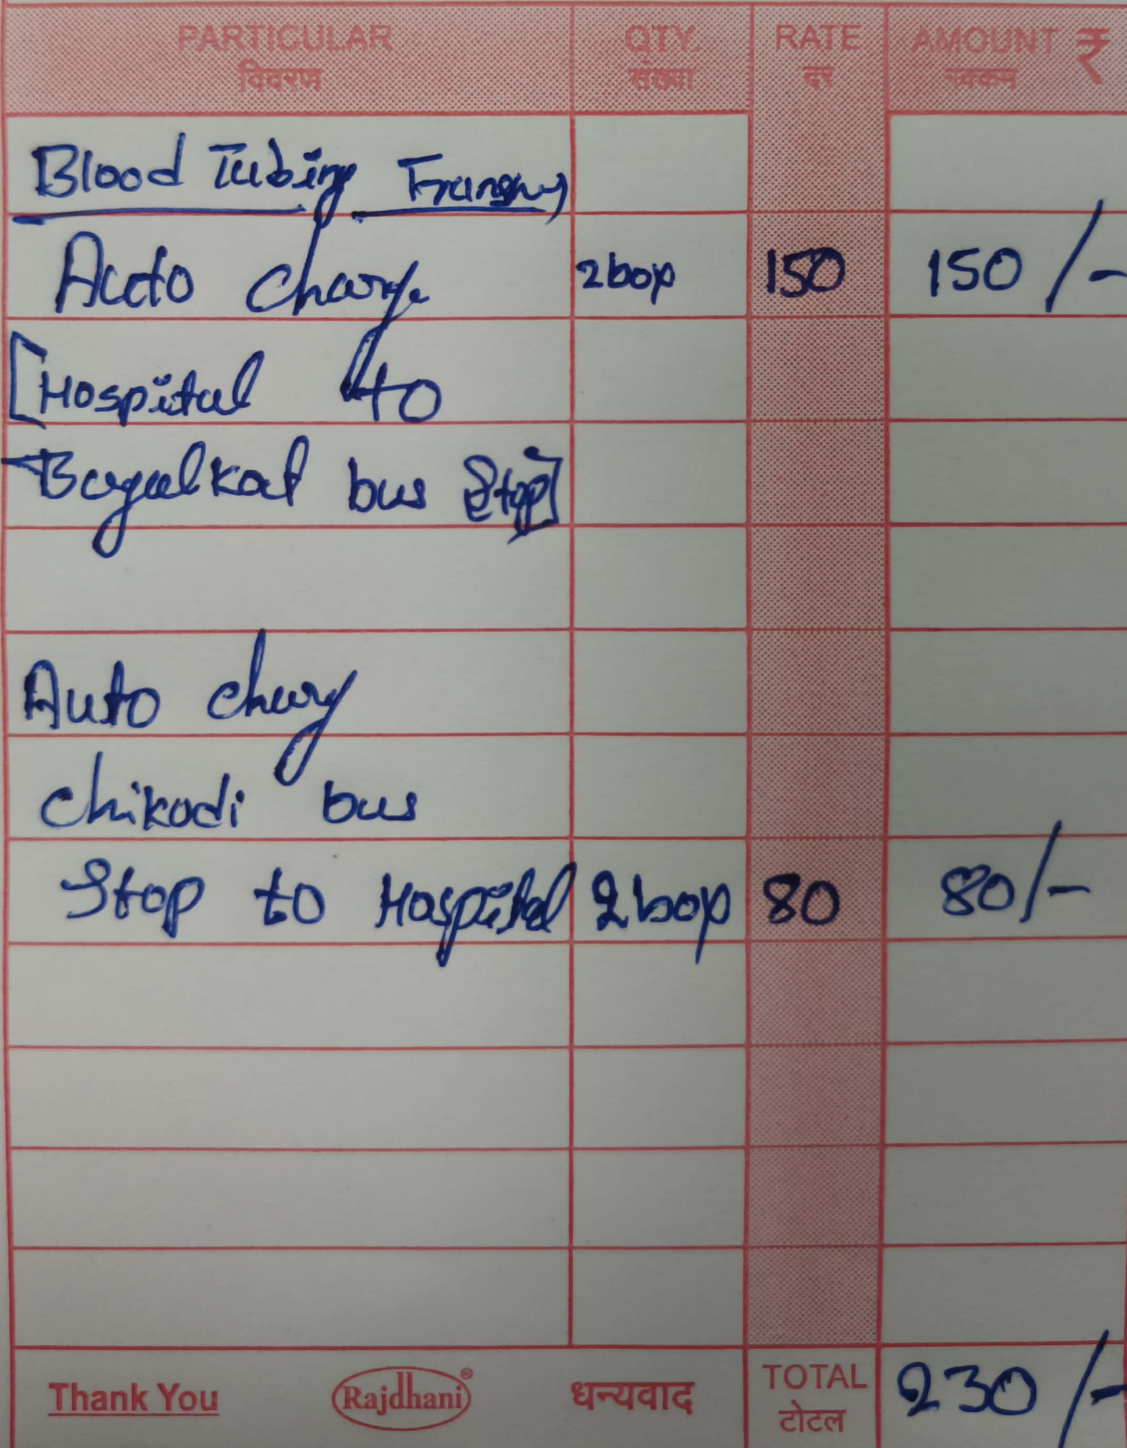 PARTICULAR QTY. RATE AMOUNT ₹
विवरण संख्या दर रक्कम
Blood Tubing
Auto charge 2 box 150 150/-
[Hospital to
Bagalkot bus Stop]
Auto charg
chikodi bus
Stop to Hospital 2 box 80 80/-
Thank You Rajdhani® धन्यवाद TOTAL 230/-
टोटल